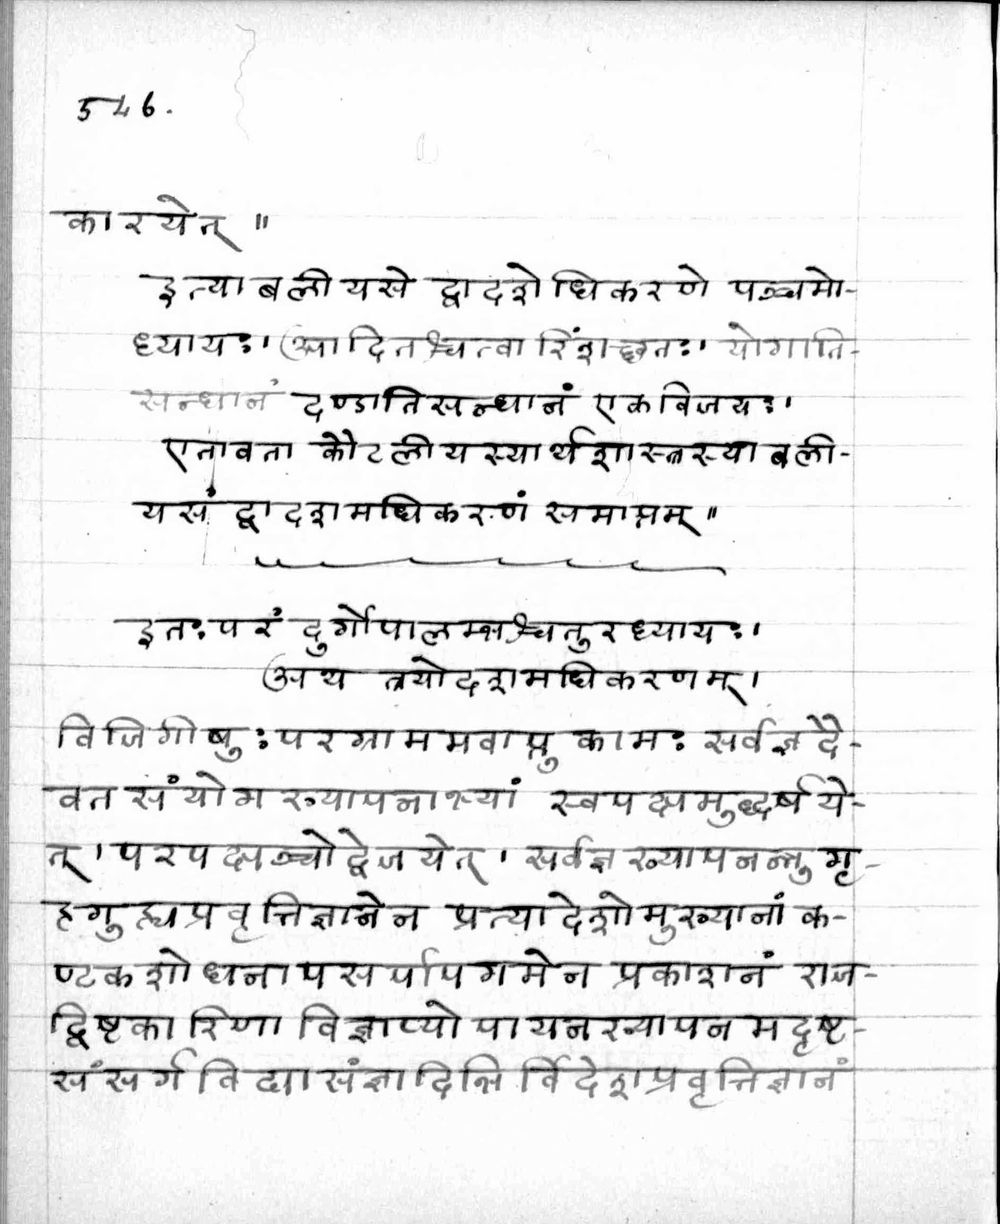 546.
कारयेत् ॥
इत्याबलीयसे द्वादशेधिकरणे पञ्चमो-
ध्यायः। आदितश्चत्वारिंशच्छतः। योगाति-
सन्धानं दण्डातिसन्धानं एकविजयः।
एतावता कौटलीयस्यार्थशास्त्रस्याबली-
यसं द्वादशमधिकरणं समाप्तम् ॥
इतःपरं दुर्गोपालम्भश्चतुरध्यायः।
अथ त्रयोदशमधिकरणम्।
विजिगीषुः परग्राममवाप्तुकामः सर्वज्ञदै-
वतसंयोगख्यापनाभ्यां स्वपक्षमुद्धर्षये-
त्। परपक्षञ्चोद्वेजयेत्। सर्वज्ञख्यापनन्तु गृ-
हगुह्यप्रवृत्तिज्ञानेन प्रत्यादेशोमुख्यानां क-
ण्टकशोधनापसर्पापगमेन प्रकाशनं राज-
द्विष्टकारिणा विज्ञाप्योपायनख्यापनमदृष्ट-
संसर्गविद्यासंज्ञादिभिर्विदेशप्रवृत्तिज्ञानं